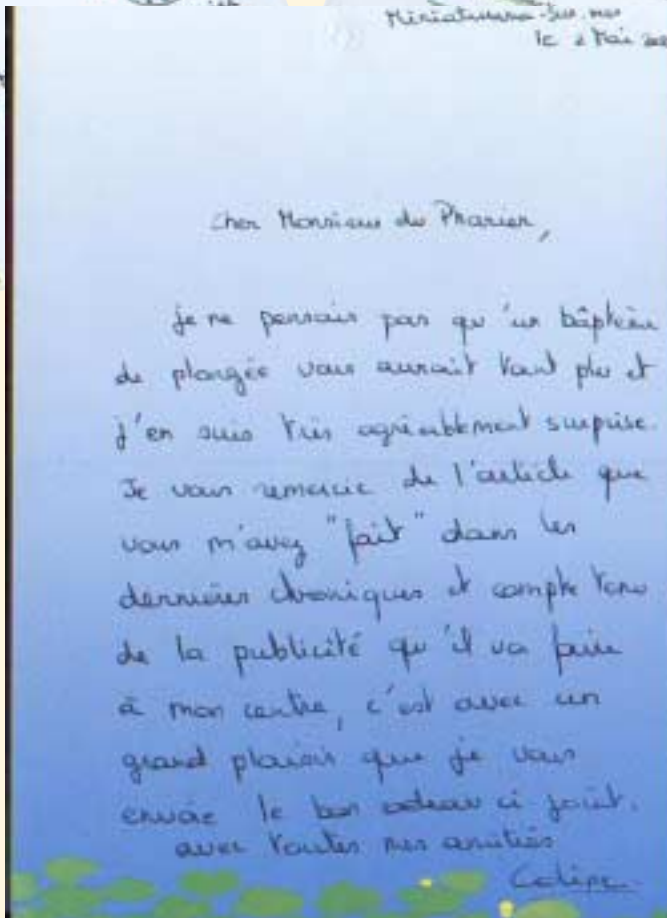 le 2 Mai
Cher Monsieur du Pharier,
je ne pensais pas qu'un bâptème
de plongée vous aurait tant plu et
j'en suis très agréablement surprise.
Je vous remercie de l'article que
vous m'avez "fait" dans les
dernières chroniques et compte tenu
de la publicité qu'il va faire
à mon centre, c'est avec un
grand plaisir que je vous
envoie le bon cadeau ci joint.
avec toutes mes amitiés